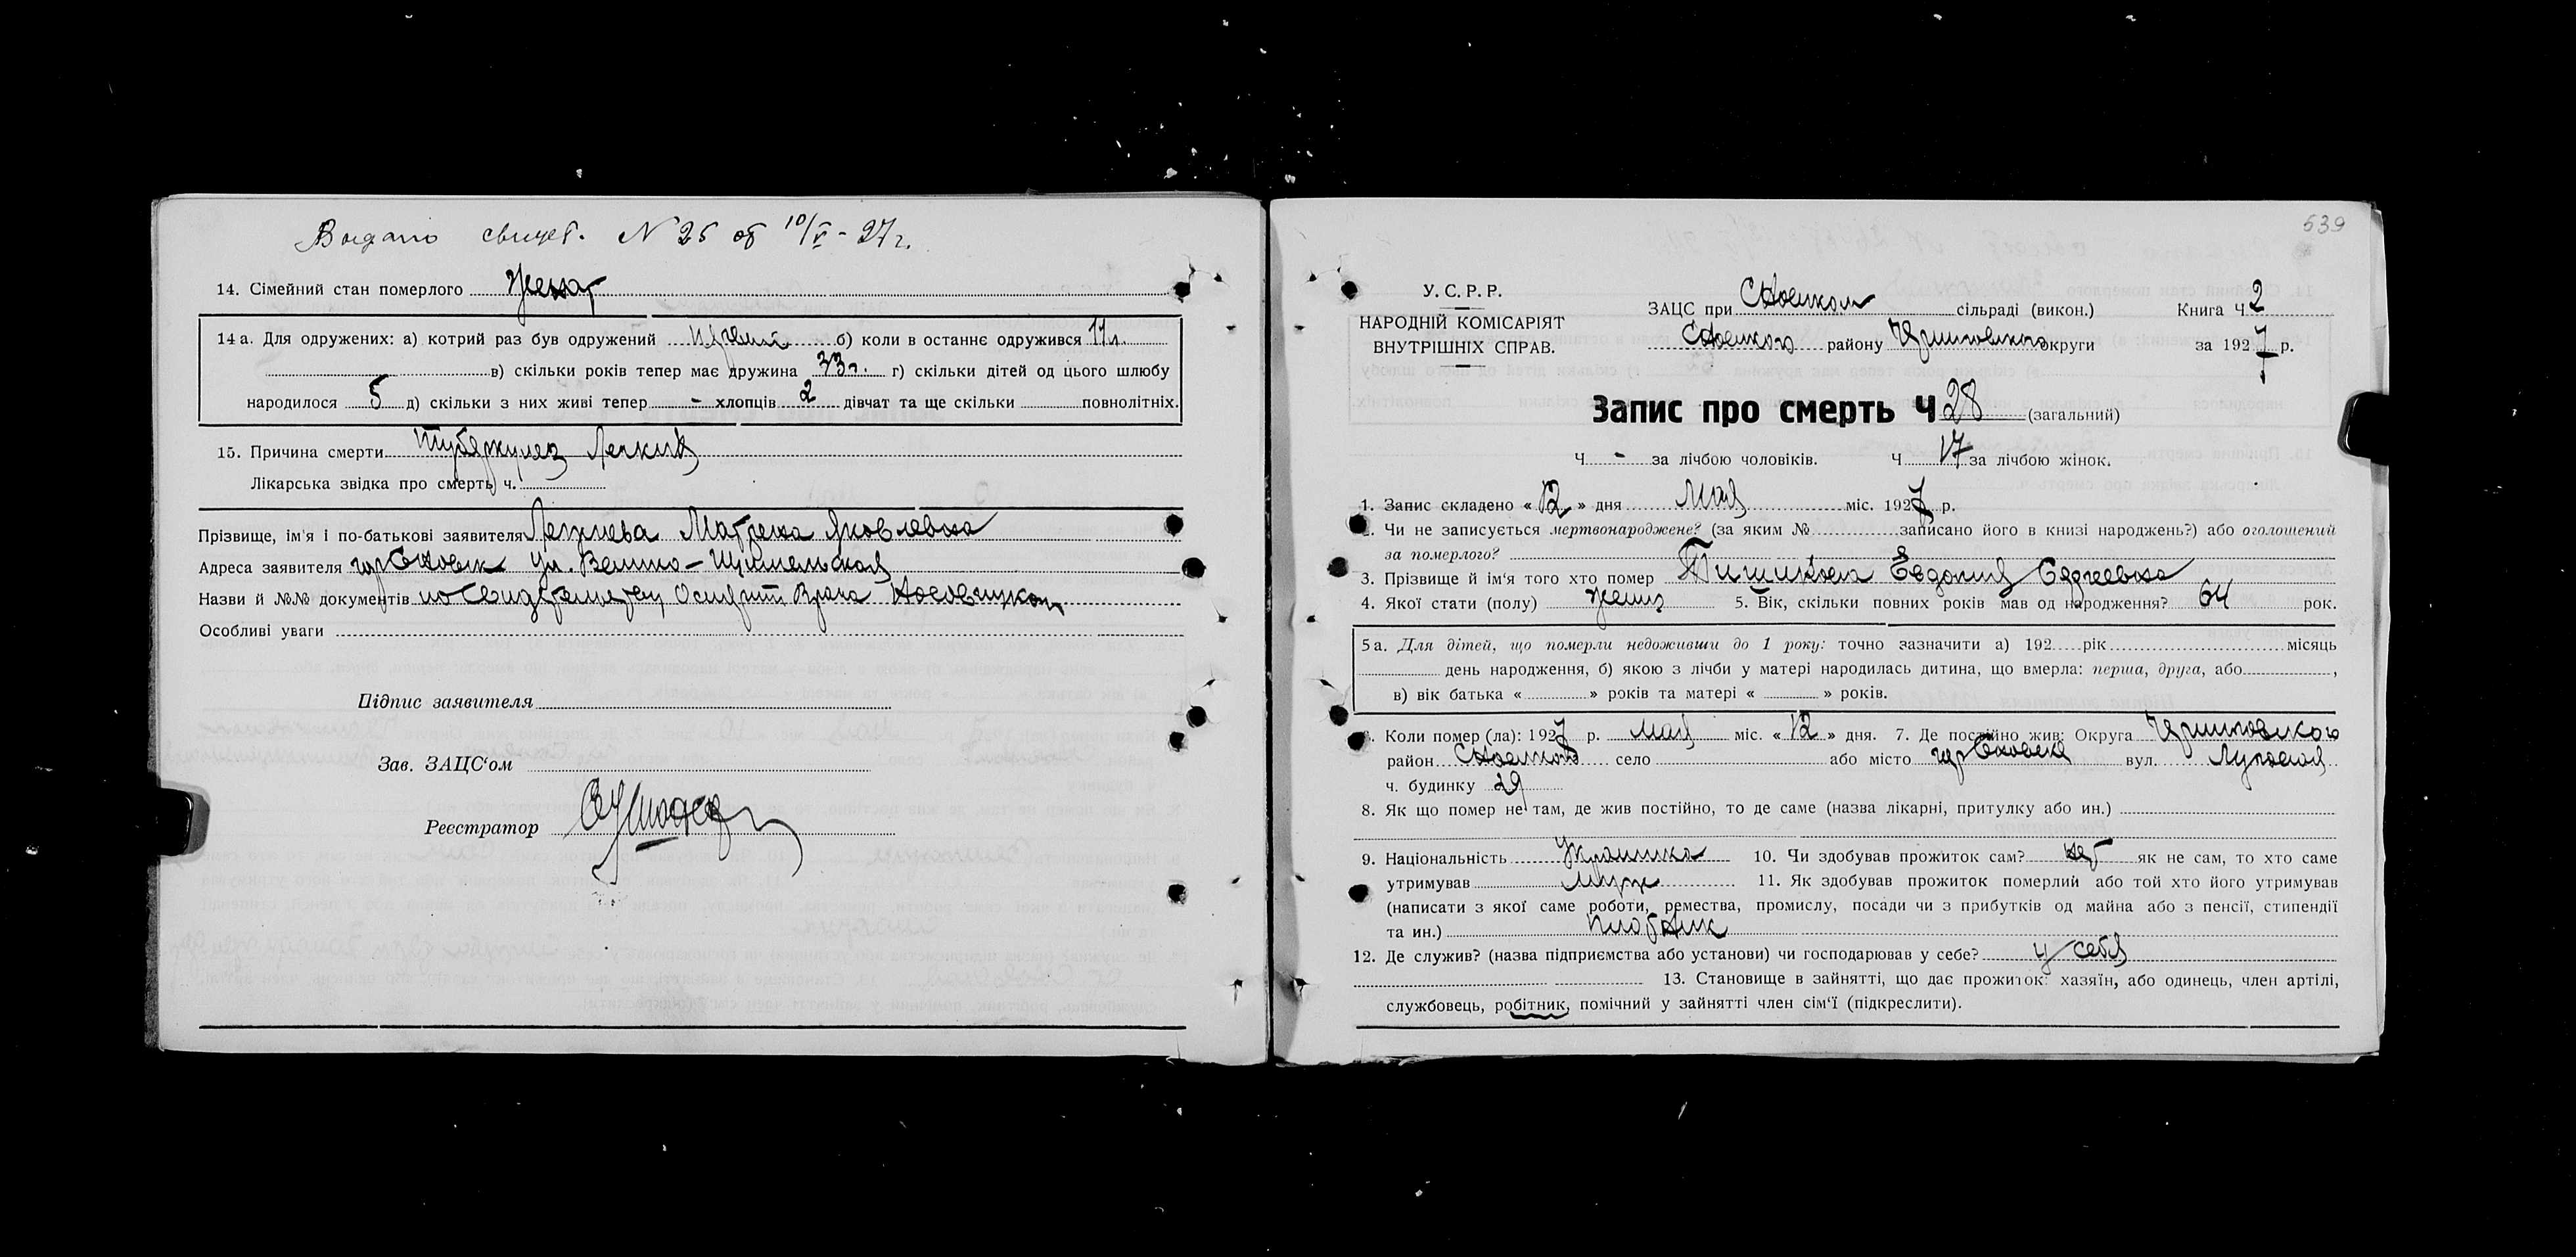 Выдано свидет. № 25 от 10/V - 27 г.
14. Сімейний стан померлого Женат
14 а. Для одружених: а) котрий раз був одружений первый б) коли в останнє одружився 11 л.
в) скільки років тепер має дружина 33 г. г) скільки дітей од цього шлюбу
народилося 5 д) скільки з них живі тепер - хлопців 2 дівчат та ще скільки повнолітніх.
15. Причина смерти Туберкулез Легких
Лікарська звідка про смерть ч.
Прізвище, ім'я і по-батькові заявителя Матрена Яковлевна
Адреса заявителя гор Сновск ул.
Назви й №№ документів по Врача
Особливі уваги
Підпис заявителя
Зав. ЗАЦС'ом
Реєстратор
539
У. С. Р. Р.
НАРОДНІЙ КОМІСАРІЯТ
ВНУТРІШНІХ СПРАВ.
ЗАЦС при Сновском сільраді (викон.) Книга Ч. 2
Сновского району Черниговского округи за 1927 р.
Запис про смерть Ч 28 (загальний)
Ч. - за лічбою чоловіків. Ч. 17 за лічбою жінок.
1. Запис складено « 12 » дня Мая міс. 1927 р.
2. Чи не записується мертвонароджене? (за яким № записано його в книзі народжень?) або оголошений
за померлого?
3. Прізвище й ім'я того хто помер Евдокия Сергеевна
4. Якої стати (полу) женск 5. Вік, скільки повних років мав од народження? 64 рок.
5 а. Для дітей, що померли недоживши до 1 року: точно зазначити а) 192 рік місяць
день народження, б) якою з лічби у матері народилась дитина, що вмерла: перша, друга, або ,
в) вік батька « » років та матері « » років.
6. Коли помер (ла): 1927 р. Мая міс. « 12 » дня. 7. Де постійно жив: Округа Черниговского
район Сновского село або місто гор Сновск вул. Луговая
ч. будинку 29
8. Як що помер не там, де жив постійно, то де саме (назва лікарні, притулку або ин.)
9. Національність Украинка 10. Чи здобував прожиток сам? нет як не сам, то хто саме
утримував муж 11. Як здобував прожиток померлий або той хто його утримував
(написати з якої саме роботи, ремества, промислу, посади чи з прибутків од майна або з пенсії, стипендії
та ин.)
12. Де служив? (назва підприємства або установи) чи господарював у себе? у себя
13. Становище в зайнятті, що дає прожиток: хазяїн, або одинець, член артілі,
службовець, робітник, помічний у зайнятті член сім'ї (підкреслити).